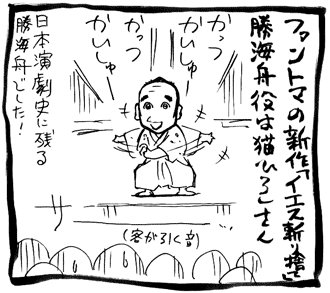 ファントマの新作「イエス斬り捨て」
勝海舟役は猫ひろしさん
かっつ
かいしゅー
かっつ
かいしゅー
日本演劇史に残る
勝海舟でした!
サ
(客が引く音)